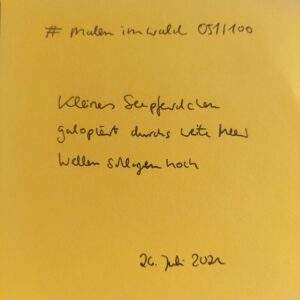 # malen im wald 051/100
Kleines Seepferdchen
galopiert durchs weite Meer
Wellen schlagen hoch
26. Juli 2021